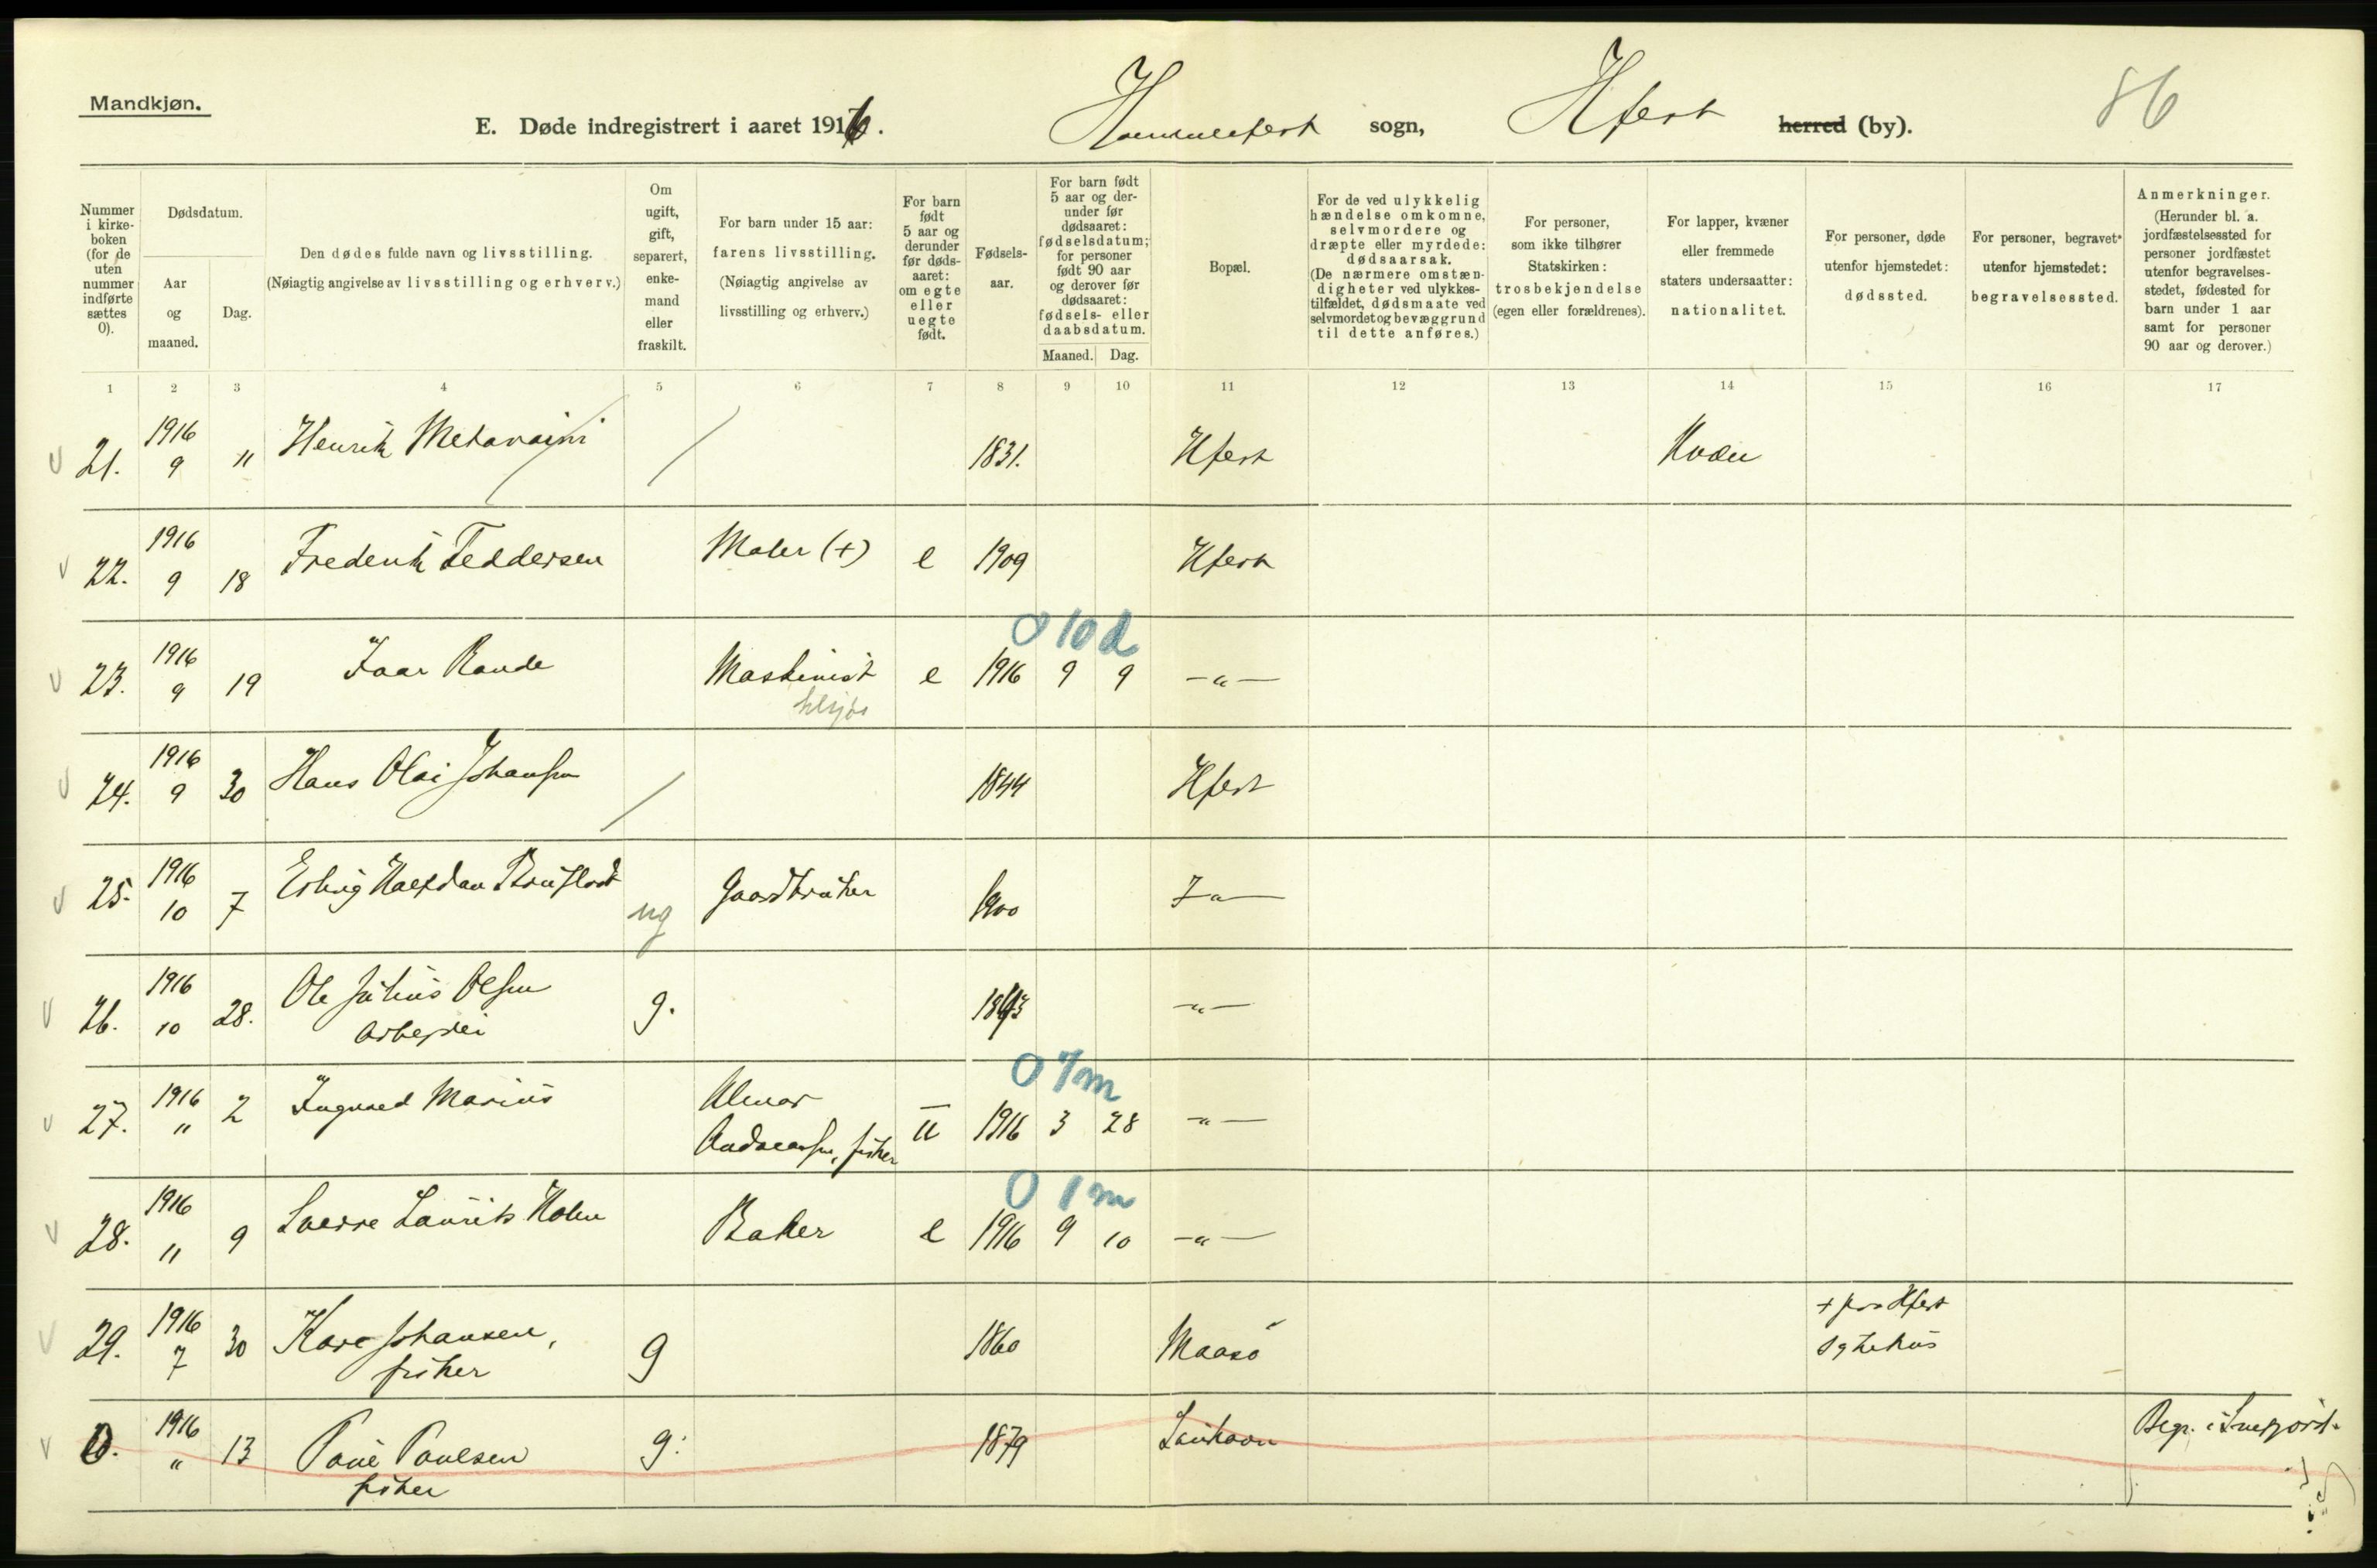 Mandkjøn.
E. Døde indregistrert i aaret 1916. Hammerfest sogn, Hfest herred (by). 86
Nummer i kirke-boken (for de uten nummer indførte sættes 0).
Dødsdatum.
Aar og maaned.
Dag.
Den dødes fulde navn og livsstilling.
(Nøiagtig angivelse av livsstilling og erhverv.)
Om ugift, gift, separert, enke-mand eller fraskilt.
For barn under 15 aar:
farens livsstilling.
(Nøiagtig angivelse av livsstilling og erhverv.)
For barn født 5 aar og derunder før døds-aaret: om egte eller uegte født.
Fødsels-aar.
For barn født 5 aar og der-under før dødsaaret: fødselsdatum; for personer født 90 aar og derover før dødsaaret: fødsels- eller daabsdatum.
Maaned. Dag.
Bopæl.
For de ved ulykkelig hændelse omkomne, selvmordere og dræpte eller myrdede: dødsaarsak.
(De nærmere omstæn-digheter ved ulykkes-tilfældet, dødsmaate ved selvmordet og bevæggrund til dette anføres.)
For personer, som ikke tilhører Statskirken: trosbekjendelse (egen eller forældrenes).
For lapper, kvæner eller fremmede staters undersaatter: nationalitet.
For personer, døde utenfor hjemstedet: dødssted.
For personer, begravet utenfor hjemstedet: begravelsessted.
Anmerkninger.
(Herunder bl. a. jordfæstelsessted for personer jordfæstet utenfor begravelses-stedet, fødested for barn under 1 aar samt for personer 90 aar og derover.)
1 2 3 4 5 6 7 8 9 10 11 12 13 14 15 16 17
21. 1916 9 11 Henrik 1831. Hfest Kvæn
22. 1916 9 18 Frederik Feddersen Maler (+) e 1909 Hfest
0 10 d
23. 1916 9 19 Ivar Rande Maskinist e 1916 9 9 — " —
24. 1916 9 30 Hans Olai Johansen 1844 Hfest
25. 1916 10 7 Erling Halfdan ug Gaardbruker 1900 — " —
26. 1916 10 28. Ole Julius Olsen g. — " —
Arbeider
0 7 m
27. 1916 " 2 Ingvard Marius
Andreassen, fisker u 1916 3 28 — " —
0 1 m
28. 1916 11 9 Sverre Laurits Holm Baker e 1916 9 10 — " —
29. 1916 7 30 Kare Johansen, g 1860 Maasø + paa Hfest
fisker sykehus
0. 1916 " 13 Paul Paulsen g. 1879 Begr. i Snefjord.
fisker